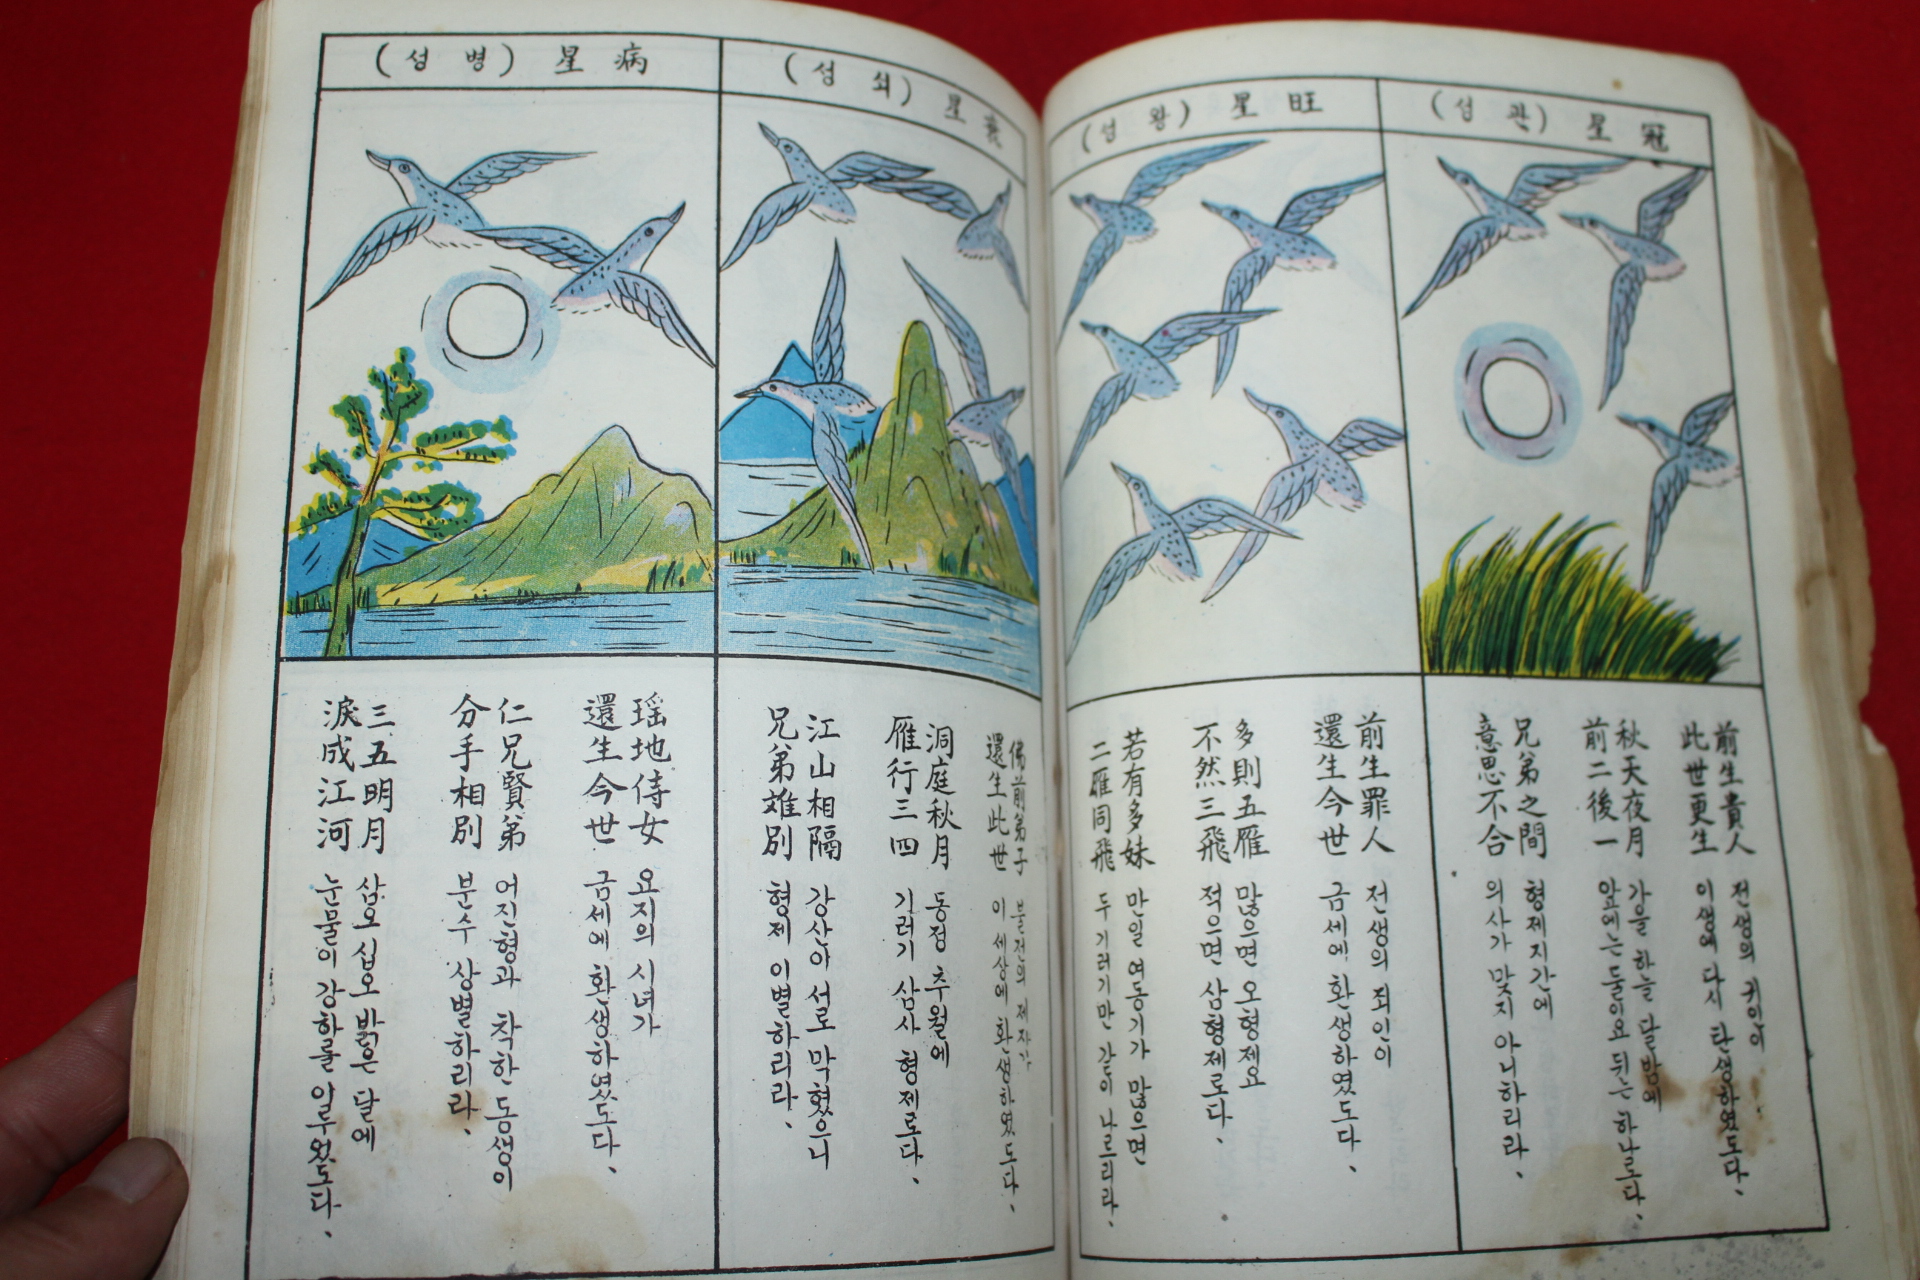 冠星 (관성)
前生貴人 전생의 귀인이
此世更生 이생에 다시 탄생하였도다、
秋天夜月 가을 하늘 달밤에
前二後一 앞에는 둘이요 뒤는 하나로다、
兄弟之間 형제지간에
意思不合 의사가 맞지 아니하리라、
旺星 (왕성)
前生罪人 전생의 죄인이
還生今世 금세에 환생하였도다、
多則五雁 많으면 오형제요
不然三飛 적으면 삼형제로다、
若有多妹 만일 여동기가 많으면
二雁同飛 두 기러기만 같이 나르리라、
衰星 (쇠성)
佛前弟子 불전의 제자가
還生此世 이 세상에 환생하였도다、
洞庭秋月 동정 추월에
雁行三四 기러기 삼사 형제로다、
江山相隔 강산이 서로 막혔으니
兄弟難別 형제 이별하리라、
病星 (병성)
瑶地侍女 요지의 시녀가
還生今世 금세에 환생하였도다、
仁兄賢弟 어진형과 착한 동생이
分手相別 분수 상별하리라、
三五明月 삼오 십오 밝은 달에
淚成江河 눈물이 강하를 이루었도다、